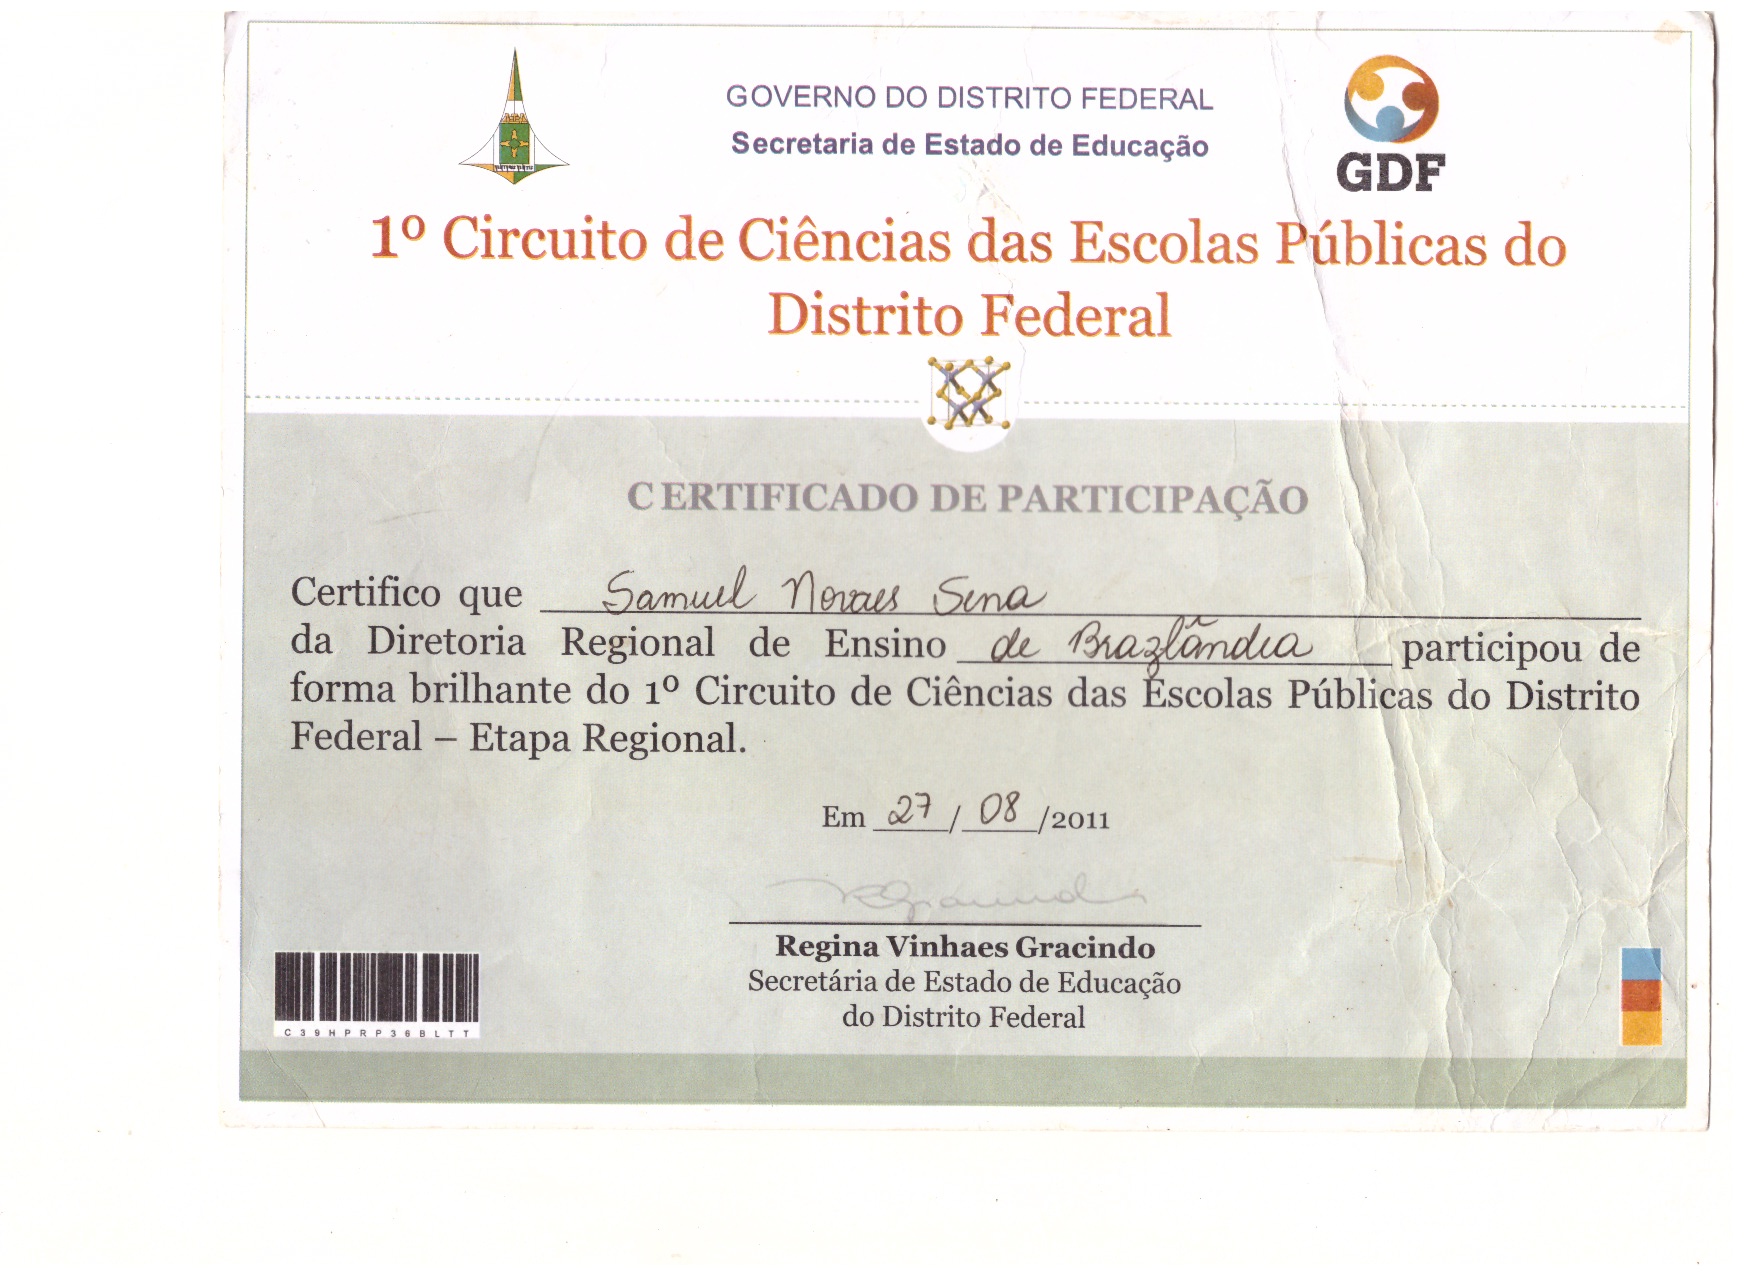 GOVERNO DO DISTRITO FEDERAL
Secretaria de Estado de Educação
GDF
1º Circuito de Ciências das Escolas Públicas do
Distrito Federal
CERTIFICADO DE PARTICIPAÇÃO
Certifico que Samuel Novaes Sena
da Diretoria Regional de Ensino de Brazlândia participou de
forma brilhante do 1º Circuito de Ciências das Escolas Públicas do Distrito
Federal – Etapa Regional.
Em 27/08/2011
Regina Vinhaes Gracindo
Secretária de Estado de Educação
do Distrito Federal
C39HPRP36BLTT